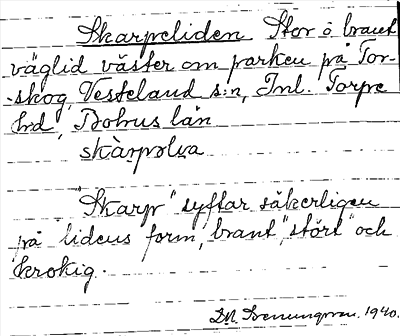 Skarpeliden Stor o brant
väglid väster om parken på Tor-
-skog, Vesteland s:n, Inl. Torpe
hrd, Bohus län
skàrpəlɩa
"Skarp" syftar säkerligen
på lidens form, brant, "stört" och
krokig.
1940.